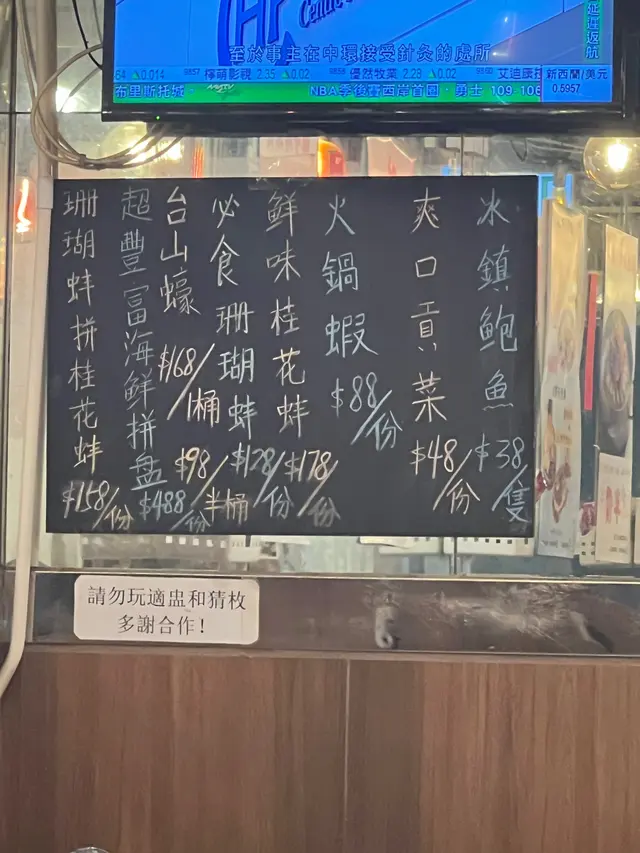 延遲返航
至於事主在中環接受針灸的處所
64 ▲0.014 檸萌影視 2.35 ▲0.02 優然牧業 2.28 ▲0.02 艾迪康控
新西蘭/美元
0.5957
布里斯托城
NBA季後賽西岸首圈・勇士 109-106
冰鎮鮑魚 $38/隻
爽口貢菜 $48/份
火鍋蝦 $88/份
鮮味桂花蚌 $178/份
必食珊瑚蚌 $128/份
台山蠔 $168/1桶 $98/半桶
超豐富海鮮拼盘 $488/份
珊瑚蚌拼桂花蚌 $158/份
請勿玩適盅和猜枚
多謝合作！